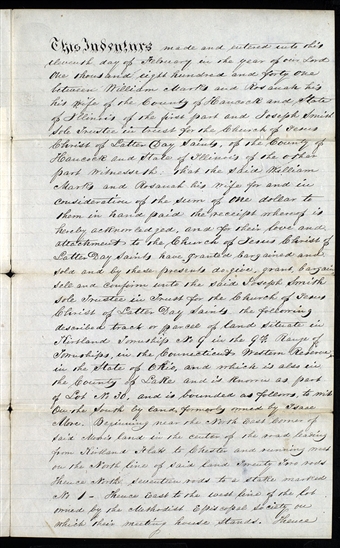 This Indenture made and entered into this
eleventh day of February in the year of our Lord
One thousand eight hundred and forty one
between William Marks and Rosanah his
his Wife of the County of Hancock and State
of Illinois of the first part and Joseph Smith
Sole Trustee in trust for the Church of Jesus
Christ of Latter Day Saints, of the County of
Hancock and State of Illinois of the other
part Witnesseth. that the said William
Marks and Rosanah his Wife for and in
consideration of the sum of One dollar to
them in hand paid the receipt whereof is
hereby acknowledged, and for their love and
attachment to the Church of Jesus Christ of
Latter Day Saints, have granted bargained and
sold and by these presents do give, grant, bargain
sell and confirm unto the said Joseph Smith
Sole Trustee in Trust for the Church of Jesus
Christ of Latter Day Saints the following
described tract or parcel of land situate in
Kirtland Township No 9 in the 9th Range of
Townships, in the Connecticut Western Reserve,
in the State of Ohio, and which is also in
the County of Lake and is known as part
of Lot No 30, and is bounded as follows, to wit
On the South by land, formerly owned by Isaac
More. Beginning near the North East Corner of
said More's land in the center of the road leading
from Kirtland Flats to Chester and running west
on the North line of said land Twenty rods
thence North seventeen rods to a stake marked
No 1 - Thence East to the west line of the lot
owned by the Methodist Episcopal Society on
which their meeting house stands. Thence